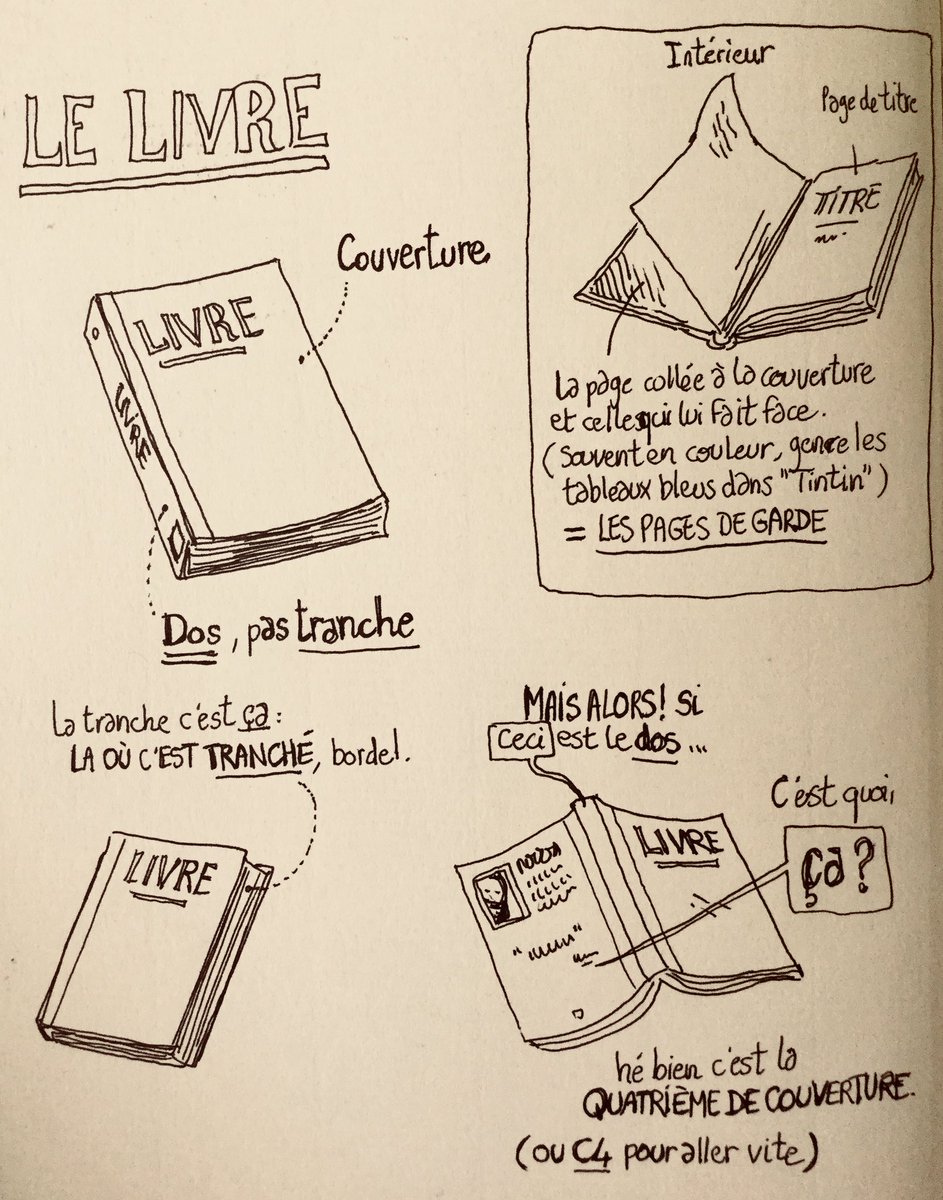 LE LIVRE
Couverture
LIVRE
LIVRE
Dos, pas tranche
Intérieur
Page de titre
TITRE
La page collée à la couverture
et celle qui lui fait face.
(Souvent en couleur, genre les
tableaux bleus dans "Tintin")
= LES PAGES DE GARDE
La tranche c'est ça :
LA OÙ C'EST TRANCHÉ, bordel.
LIVRE
MAIS ALORS! Si
Ceci est le dos ...
C'est quoi,
Ça ?
LIVRE
hé bien c'est la
QUATRIÈME DE COUVERTURE.
(ou C4 pour aller vite)